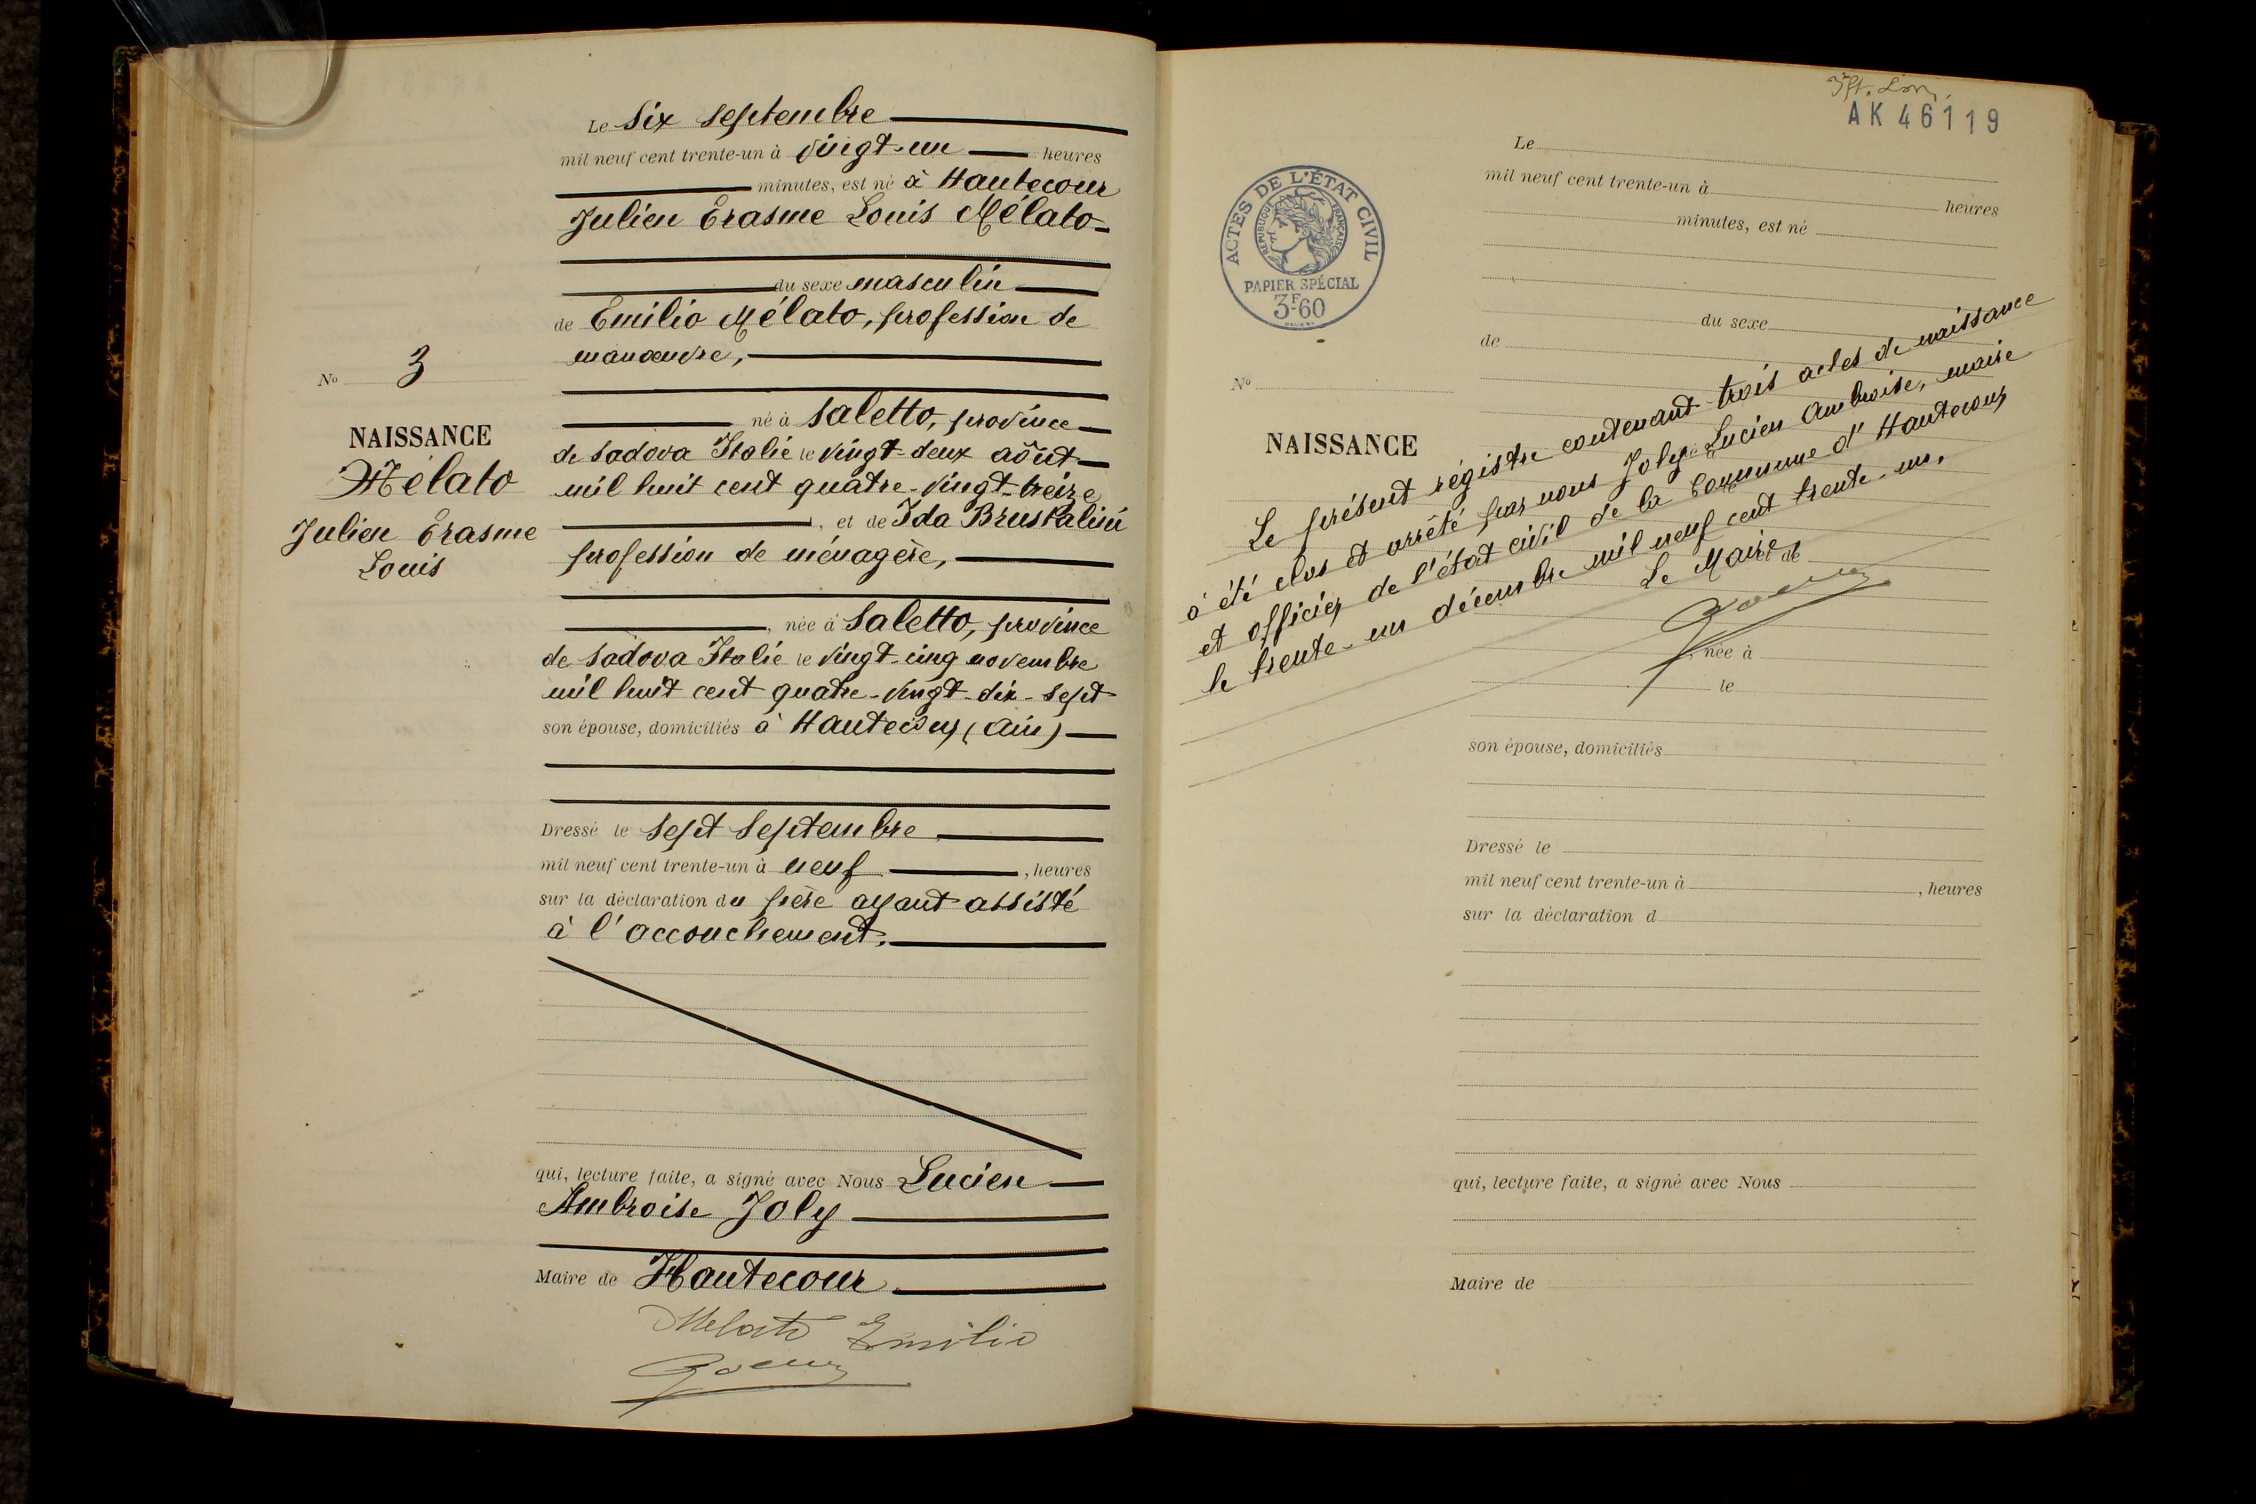 Le Six Septembre
mil neuf cent trente-un à vingt-un heures
minutes, est né à Hautecour
Julien Erasme Louis Mélato
du sexe masculin
de Emilio Mélato, profession de
manœuvre,
né à Saletto, province
de Padova Italie le vingt-deux août
mil huit cent quatre-vingt-treize
, et de Ida
profession de ménagère,
, née à Saletto, province
de Padova Italie le vingt-cinq novembre
mil huit cent quatre-vingt-dix-sept
son épouse, domiciliés à Hautecour (Ain)
Dressé le Sept Septembre
mil neuf cent trente-un à neuf , heures
sur la déclaration du père ayant assisté
à l'accouchement.
qui, lecture faite, a signé avec Nous Lucien
Ambroise Joly
Maire de Hautecour
Melato Emilio
No 3
NAISSANCE
Mélato
Julien Erasme
Louis
AK 46119
ACTES DE L'ÉTAT CIVIL
RÉPUBLIQUE FRANÇAISE
PAPIER SPÉCIAL
3F60
Le
mil neuf cent trente-un à
heures
minutes, est né
du sexe
de
No
NAISSANCE
Le présent régistre contenant trois actes de naissance
a été clos et arrêté par nous Joly Lucien Ambroise, maire
et officier de l'état civil de la Commune d'Hautecour
le trente-un décembre mil neuf cent trente-un.
Le Maire
et de
, née à
le
son épouse, domiciliés
Dressé le
mil neuf cent trente-un à , heures
sur la déclaration d
qui, lecture faite, a signé avec Nous
Maire de